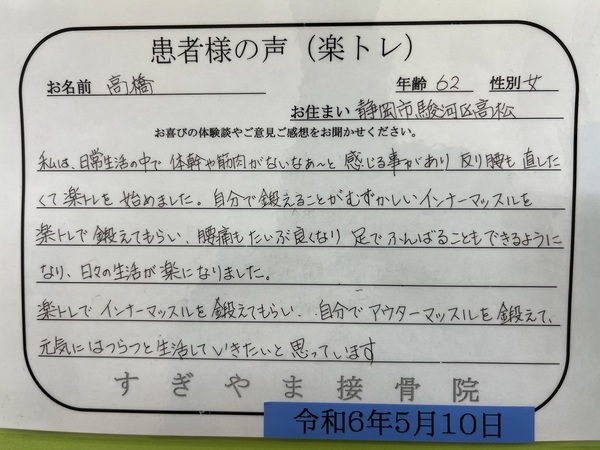 患者様の声（楽トレ）
お名前 高橋 年齢 62 性別 女
お住まい 静岡市駿河区高松
お喜びの体験談やご意見ご感想をお聞かせください。
私は、日常生活の中で 体幹や筋肉がないなあ〜と 感じる事があり 反り腰も 直した
くて楽トレを 始めました。自分で鍛えることがむずかしいインナーマッスルを
楽トレで 鍛えてもらい、腰痛も だいぶ良くなり 足で ふんばることもできるように
なり、日々の生活が 楽になりました。
楽トレで インナーマッスルを 鍛えてもらい、自分で アウターマッスルを 鍛えて、
元気にはつらつと生活していきたいと 思っています
すぎやま接骨院
令和6年5月10日